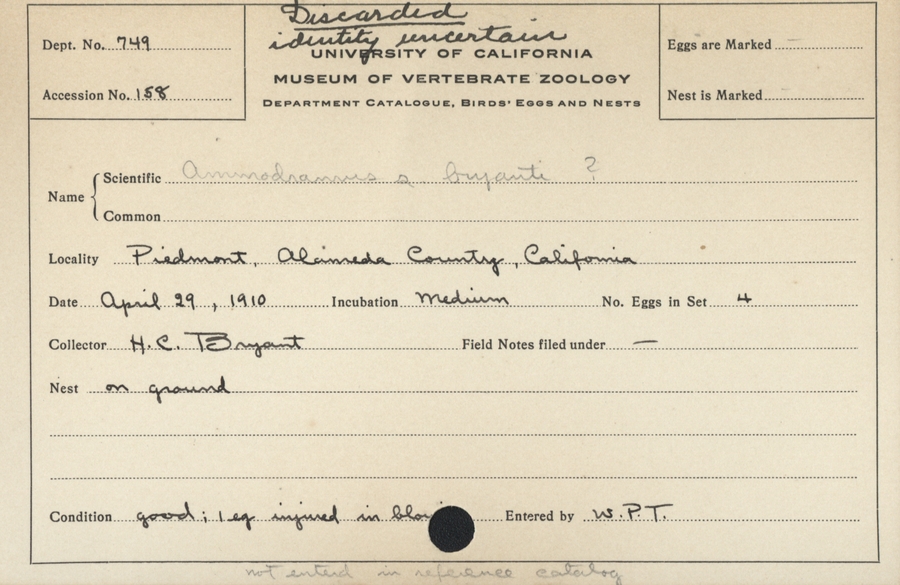 Discarded
identity uncertain
Dept. No. 749
UNIVERSITY OF CALIFORNIA
Eggs are Marked —
MUSEUM OF VERTEBRATE ZOOLOGY
Accession No. 158
DEPARTMENT CATALOGUE, BIRDS' EGGS AND NESTS
Nest is Marked
Name
Scientific Ammodramus s. bryanti ?
Common
Locality Piedmont, Alameda County, California
Date April 29, 1910 Incubation Medium No. Eggs in Set 4
Collector H.C. Bryant Field Notes filed under —
Nest on ground
Condition good; 1 eg injured in Entered by W.P.T.
not enterd in reference catalog